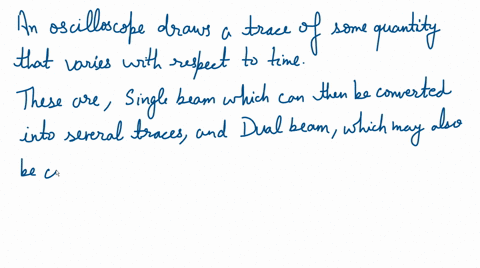 An oscilloscope draws a trace of some quantity
that varies with respect to time.
These are, Single beam which can then be converted
into several traces, and Dual beam, which may also
be c